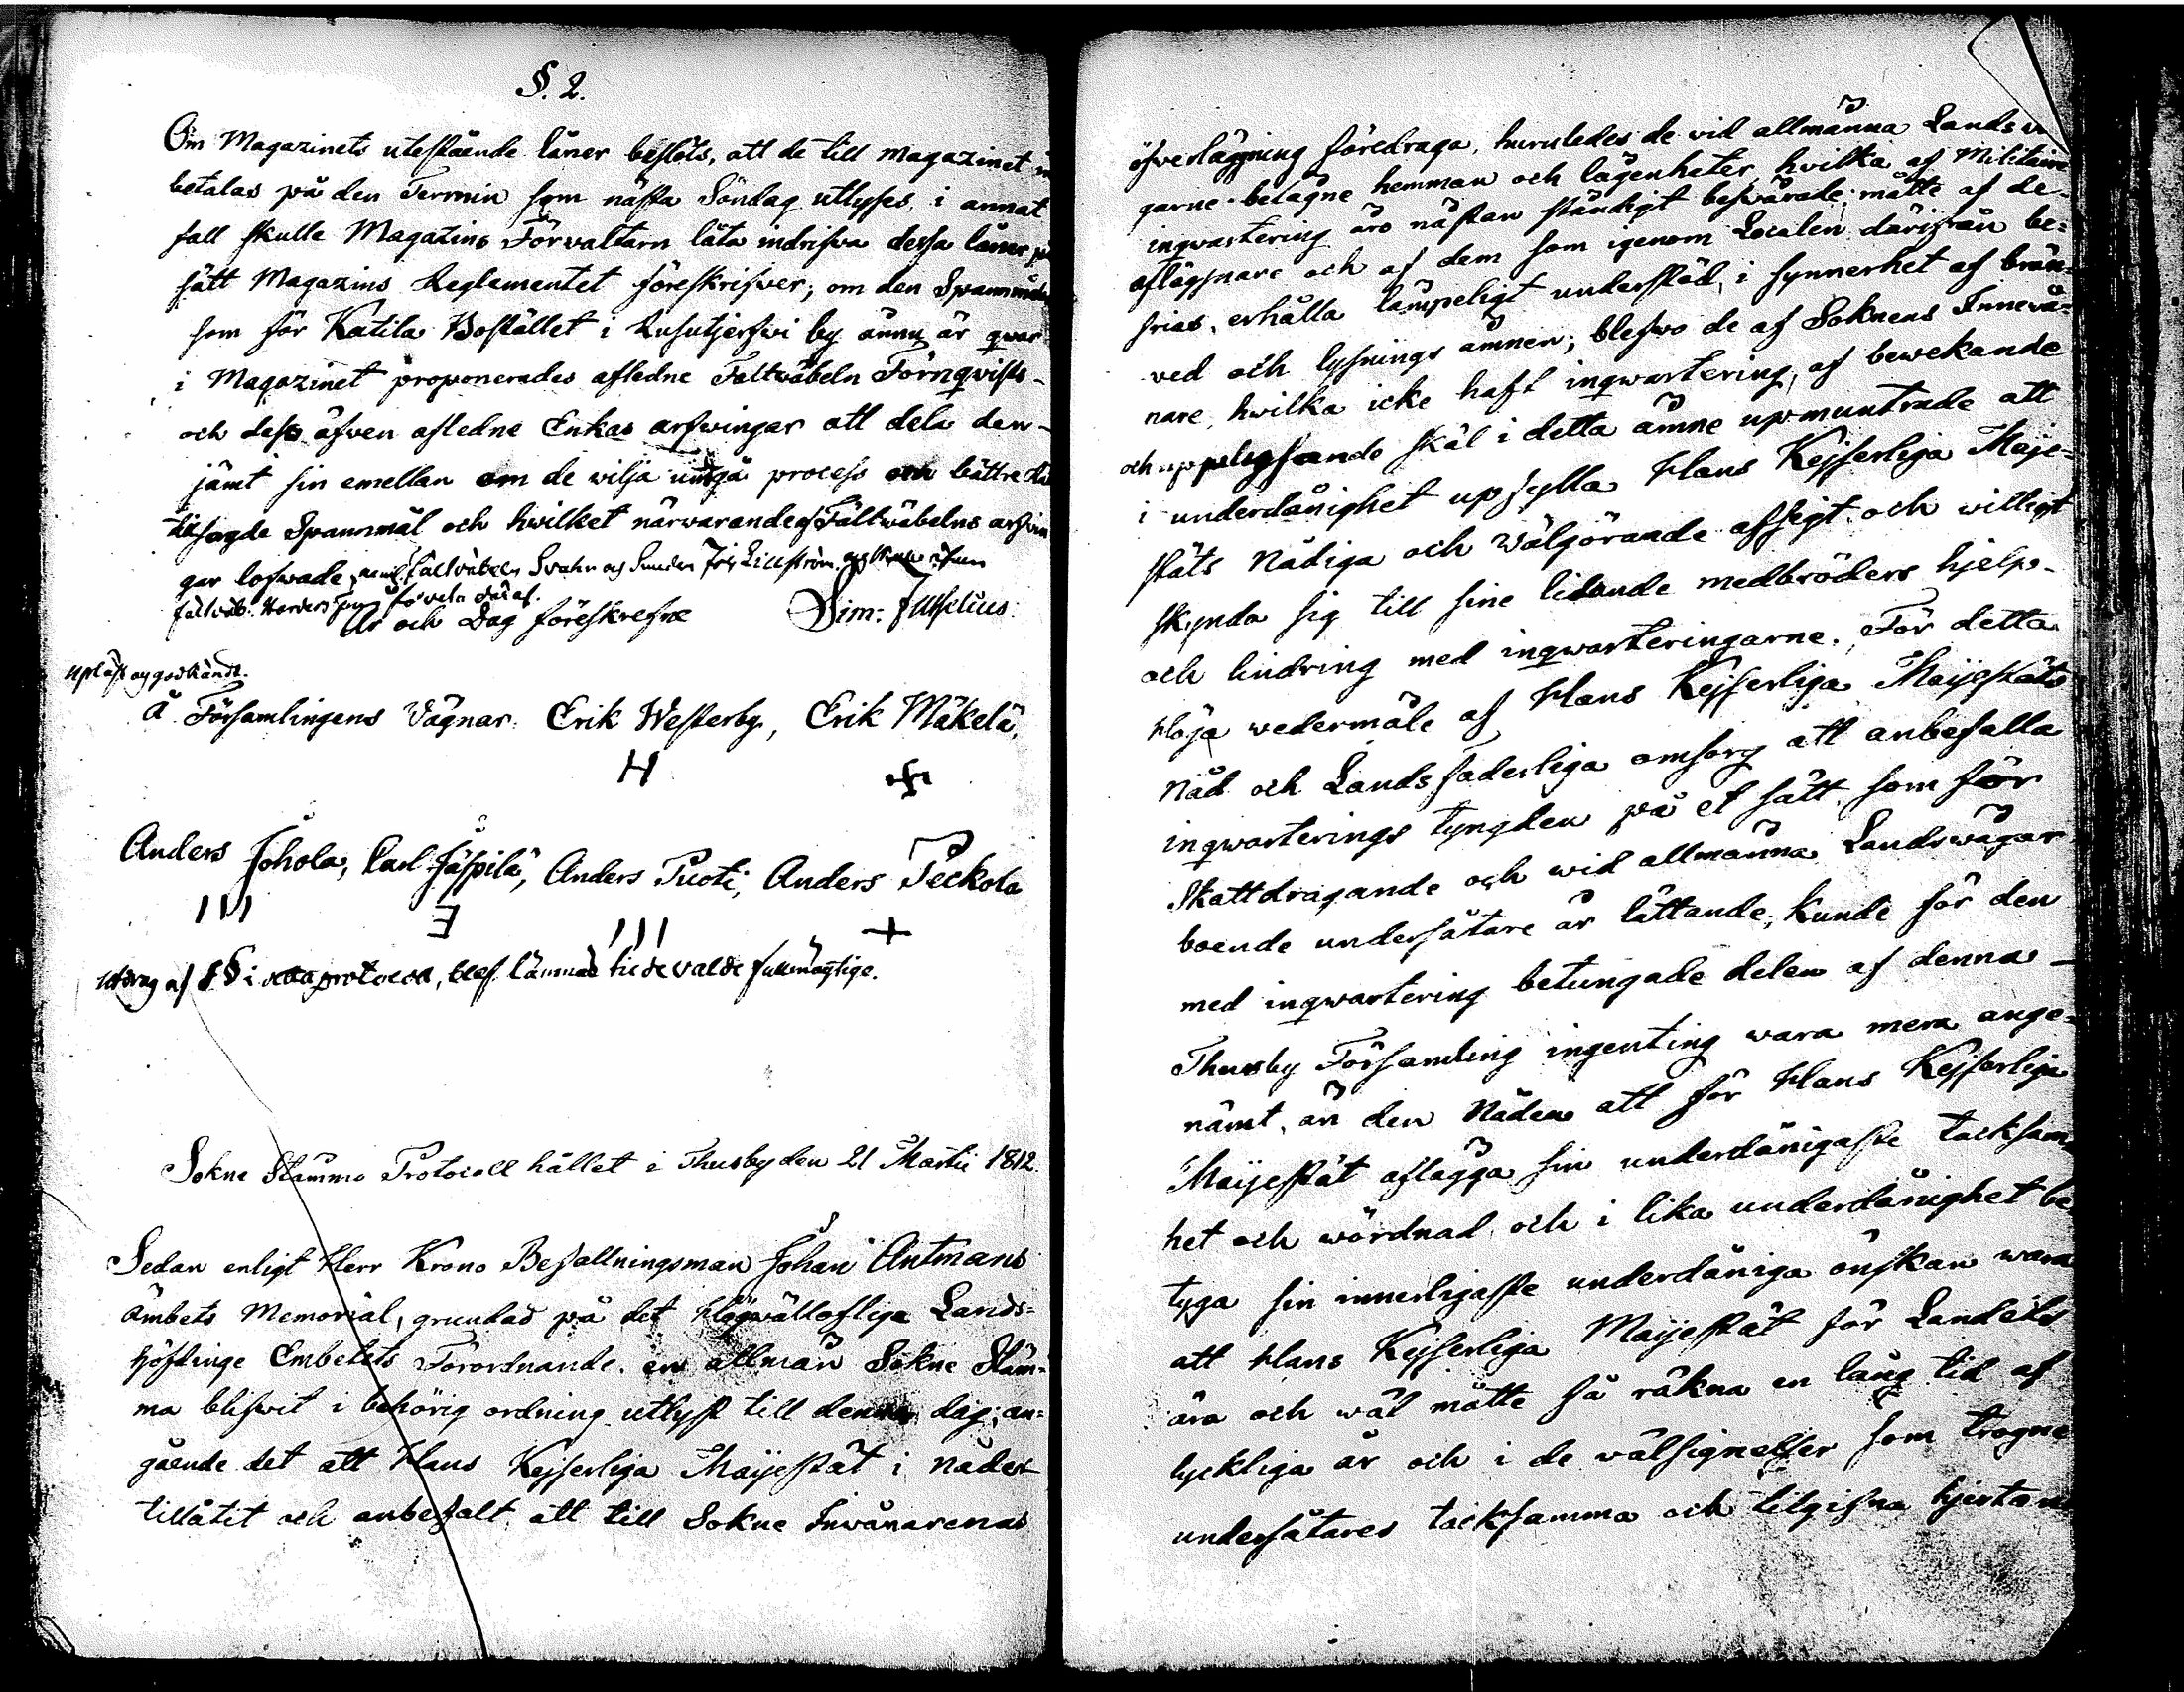 §. 2.
Om Magazinets utestående låner beslöts, att de till magazinet
betalas på den Termin som nästa Söndag utlyses, i annat
fall skulle Magazins Förvaltarn låta indrifwa dessa låner
sätt Magazins Reglementet föreskrifwer; om den Spannmål
som för Katila Bostället i Rusutjerfwi by ännu är qwar
i Magazinet proponerades afledne Faltwäbeln Törnqvists
och dess äfwen afledne Enkas arfwingar att dela den
jämt sin emellan om de wilja undgå process och bättre
tillsagde Spannmål och hwilket närwarande af Fältwäbelns arfwin
gar lofwade, neml. Faltväbeln Svahn och
År och Dag föreskrefne Sim: Juselius.
Upläst og godkändt.
Å Församlingens Vägnar. Erik Westerby, Erik Mäkelä,
Anders Johola, Carl Jäspilä, Anders Tuoti, Anders Peckola
Utdrag af § i protocoll, blef lämnad til de valde fullmägtige.
Sokne Stämmo Protocoll hållet i Thusby den 21 Martii 1812.
Sedan enligt Herr Krono Befallningsman Johan Antmans
Ambets Memorial, grundad på det Högwällofliga Lands=
höfdinge Embetets Förordnande, en allmän Sokne Stäm=
ma blifwit i behörig ordning utlyst till denna dag; an=
gående det att Hans Kejserliga Maijestät i nåder
tillåtit och anbefalt att till Sokne Inwånarenas
öfverläggning föredraga, huruledes de vid allmänna Lands
garne belägne hemman och lägenheter, hvilka af Militaire
inqwartering äro nästan ständigt beswärade; måtte af de
aflägsnare och af dem som igenom Localen därifrån be=
frias, erhålla lämpeligt understöd, i synnerhet af brän=
ved och lysnings ämnen; blefwo de af Soknens Innevå=
nare, hwilka icke haft inqwartering, af bewekande
och upplysande skäl i detta ämne upmuntrade att
i underdånighet upfylla Hans Kejserliga Maje=
stäts Nådiga och Wälgörande afsigt och willigt
skynda sig till sine lidande medbröders hjelp
och lindring med inqwarteringarne. För detta
Höga wedermäle af Hans Kejserliga Maijestäts
Nåd och Landsfaderliga omsorg att anbefalla
inqwarterings tyngden på et sätt som för
Skattdragande och wid allmänna Landswägar
boende undersåtare är lättande; kunde för den
med inqwartering betungade delen af denna
Thusby Församling ingenting wara mera ange=
nämt, än den Nåden att för Hans Kejserliga
Maijestät aflägga sin underdånigaste tacksam
het och wördnad och i lika underdånighet be
tyga sin innerligaste underdåniga önskan wara
att Hans Kejserliga Maijestät för Landets
ära och wäl måtte få räkna en lång tid af
lyckliga år och i de wälsignelser som trogne
undersåtares tacksamma och tilgifna hjertan